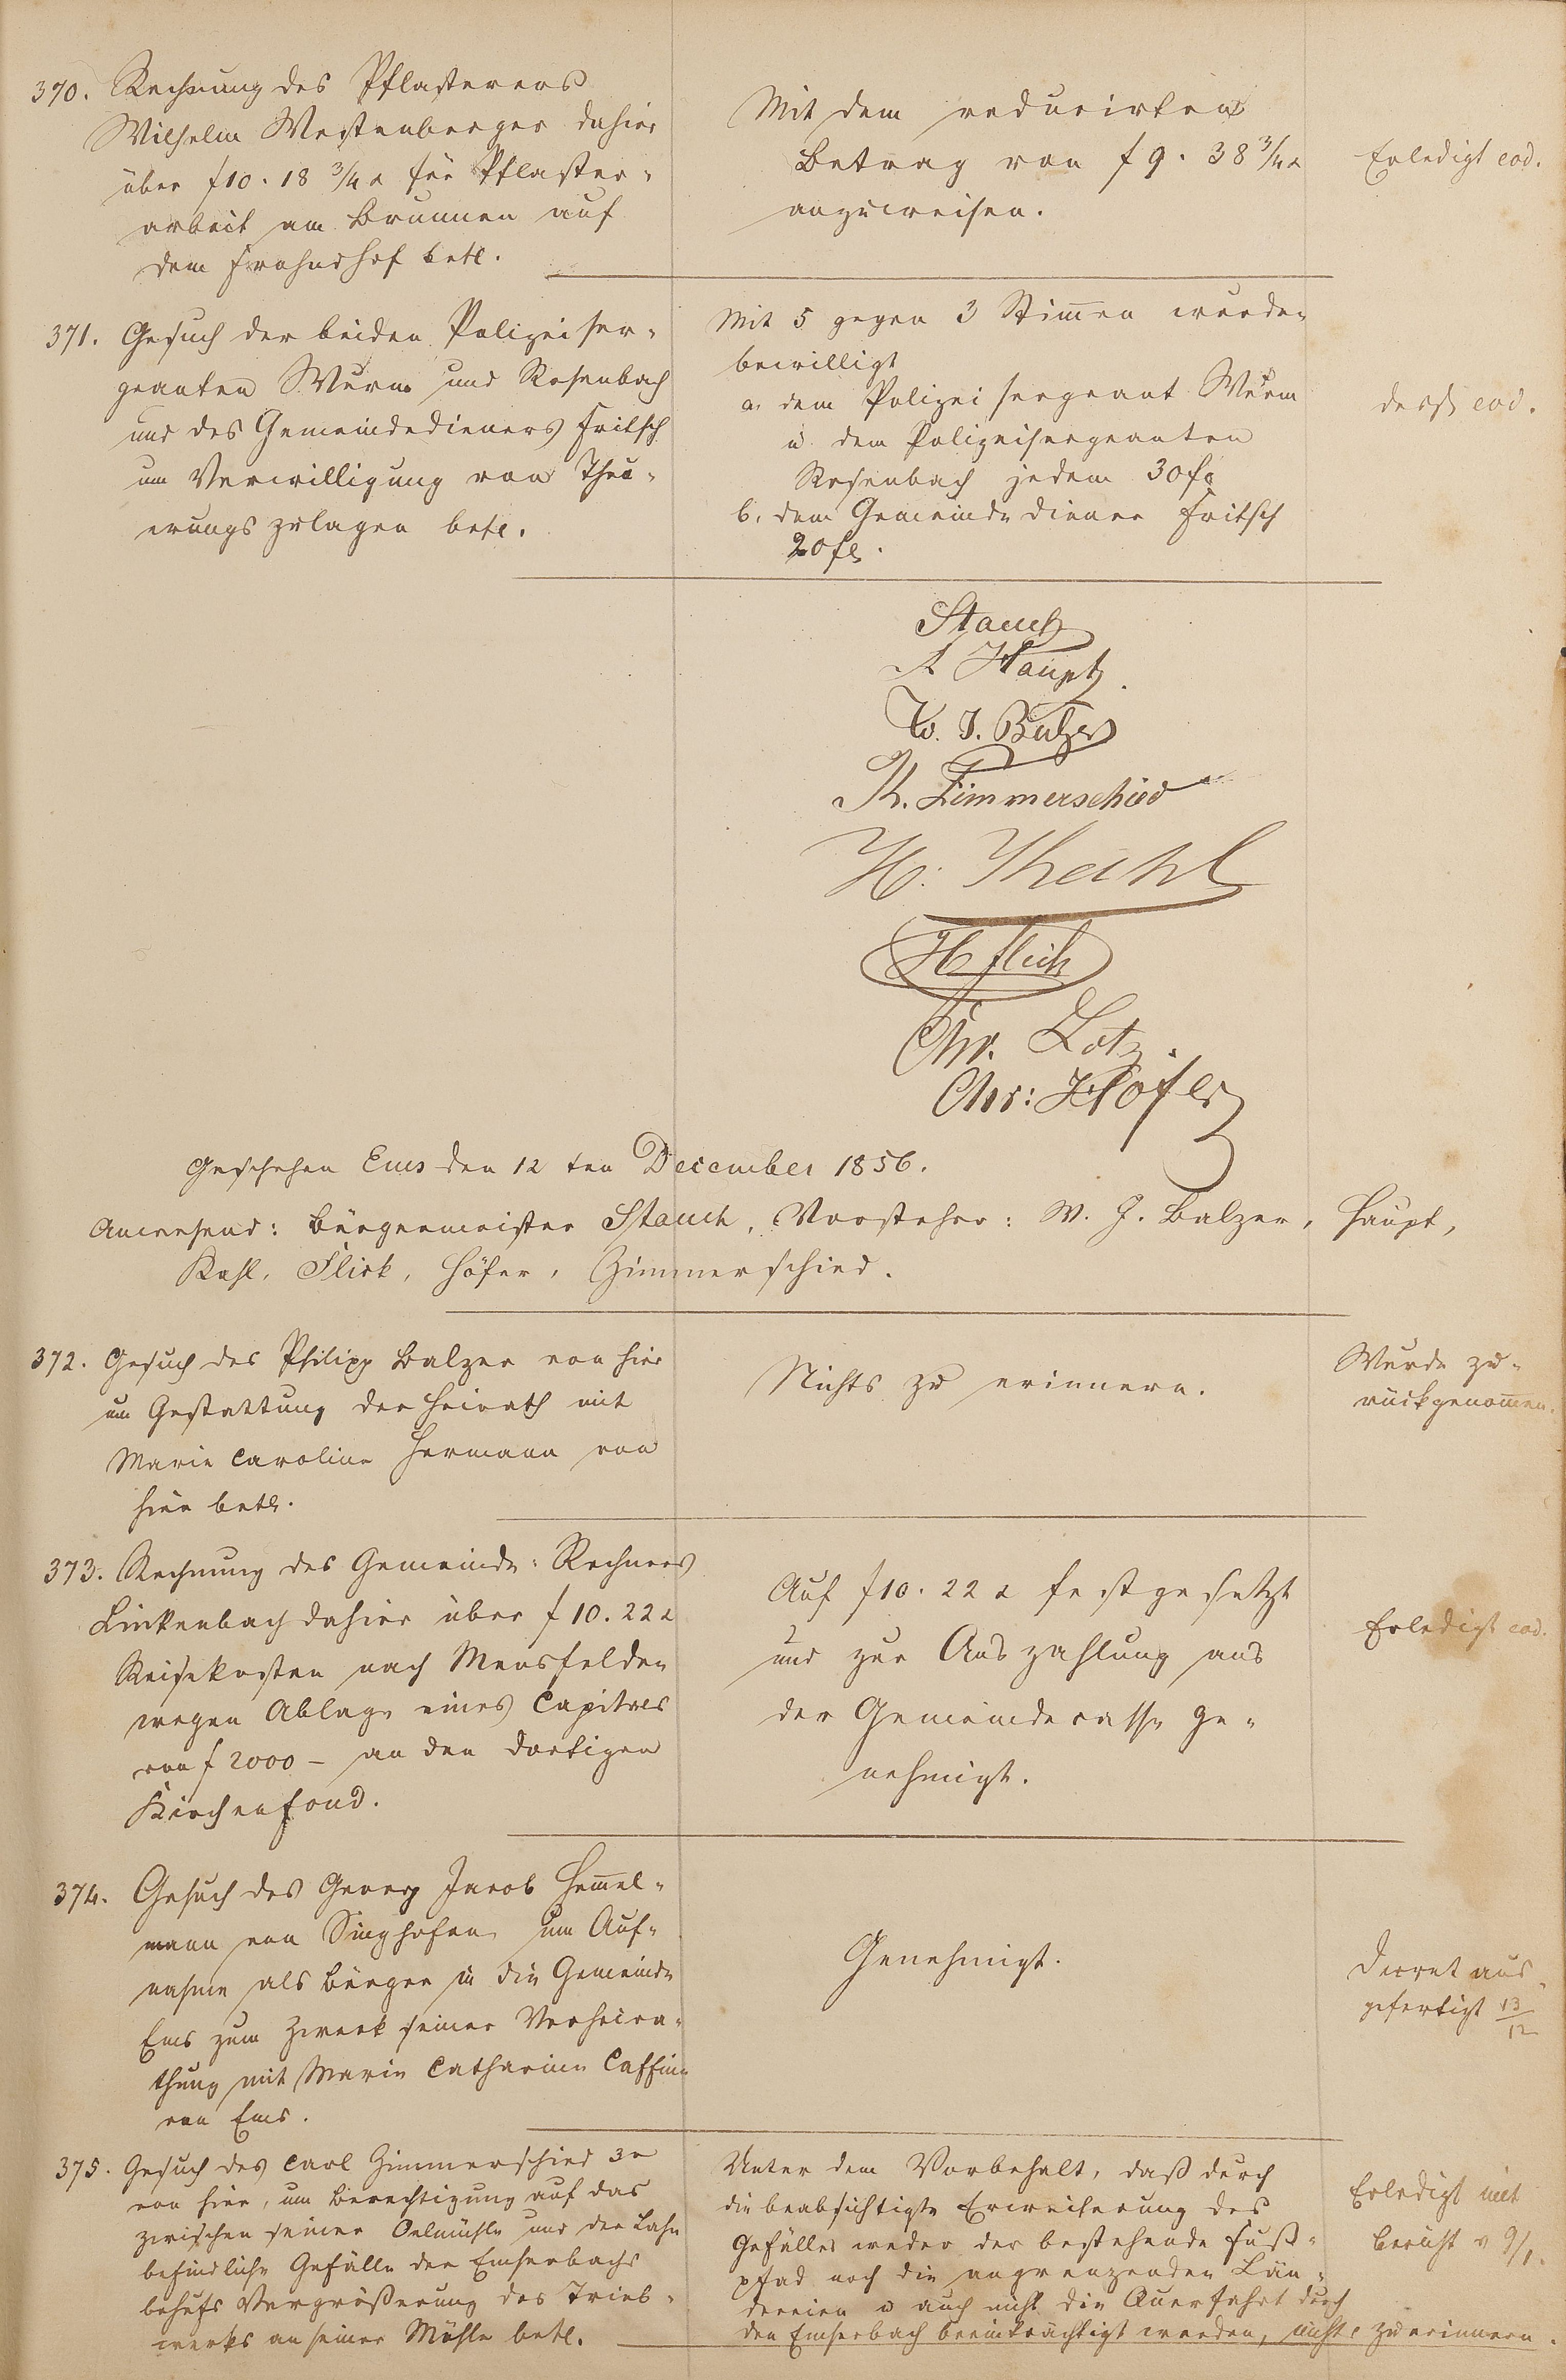 370. Rechnung des Pflasterers
Wilhelm Westenberger dahier
über f 10. 18 3/4 x für Pflaster-
arbeit am Brunnen auf
dem Frohnhof betr.
Mit dem reducirten
Betrag von f 9. 38 3/4 x
anzuweisen.
Erledigt eod.
371. Gesuch der beiden Polizeiser-
geanten Wurm und Rosenbach
und des Gemeindedieners Fritsch
um Verwilligung von Theu-
erungszulagen betr.
Mit 5 gegen 3 Stimmen wurde
bewilligt
a. dem Polizeisergeant Wurm
u dem Polizeisergeanten
Rosenbach jedem 30 fl
b. dem Gemeindediener Fritsch
20 fl.
desgl. eod.
Stauch
A Haupt
W. J. Balzer
K. Zimmerschied
H. Kahl
H Flick
Chr. Lotz.
Chr: Höfer
Geschehen Ems den 12 ten December 1856.
Anwesend: Bürgermeister Stauch, Vorsteher: W. J. Balzer, Haupt,
Kahl, Flick, Höfer, Zimmerschied.
372. Gesuch des Philipp Balzer von hier
um Gestattung der Heirath mit
Marie Caroline Hermann von
hier betr.
Nichts zu erinnern.
Wurde zu-
rückgenommen.
373. Rechnung des Gemeinde-Rechners
Linkenbach dahier über f 10. 22 x
Reisekosten nach Mensfelden
wegen Ablage eines Capitals
von f 2000 – an den dortigen
Kirchenfond.
Auf f 10. 22 x festgesetzt
und zur Auszahlung aus
der Gemeindecasse ge-
nehmigt.
Erledigt eod.
374. Gesuch des Georg Jacob Hemmel-
mann von Singhofen um Auf-
nahme als Bürger in die Gemeinde
Ems zum Zweck seiner Verheira-
thung mit Marie Catharine Caffine
von Ems.
Genehmigt.
Decret aus-
gefertigt 13/12
375. Gesuch des Carl Zimmerschied 3r
von hier, um Berechtigung auf das
zwischen seiner Oelmühle und der Lahn
befindliche Gefälle der Emserbachs
behufs Vergrößerung des Trieb-
werks an seiner Mühle betr.
Unter dem Vorbehalt, daß durch
die beabsichtigte Erweiterung des
Gefälles weder der bestehende Fuß-
pfad noch die angrenzenden Län-
dereien u auch nicht die Querfahrt durch
den Emserbach beeinträchtigt werden, nichts zu erinnern.
Erledigt mit
Bericht v 9/1.